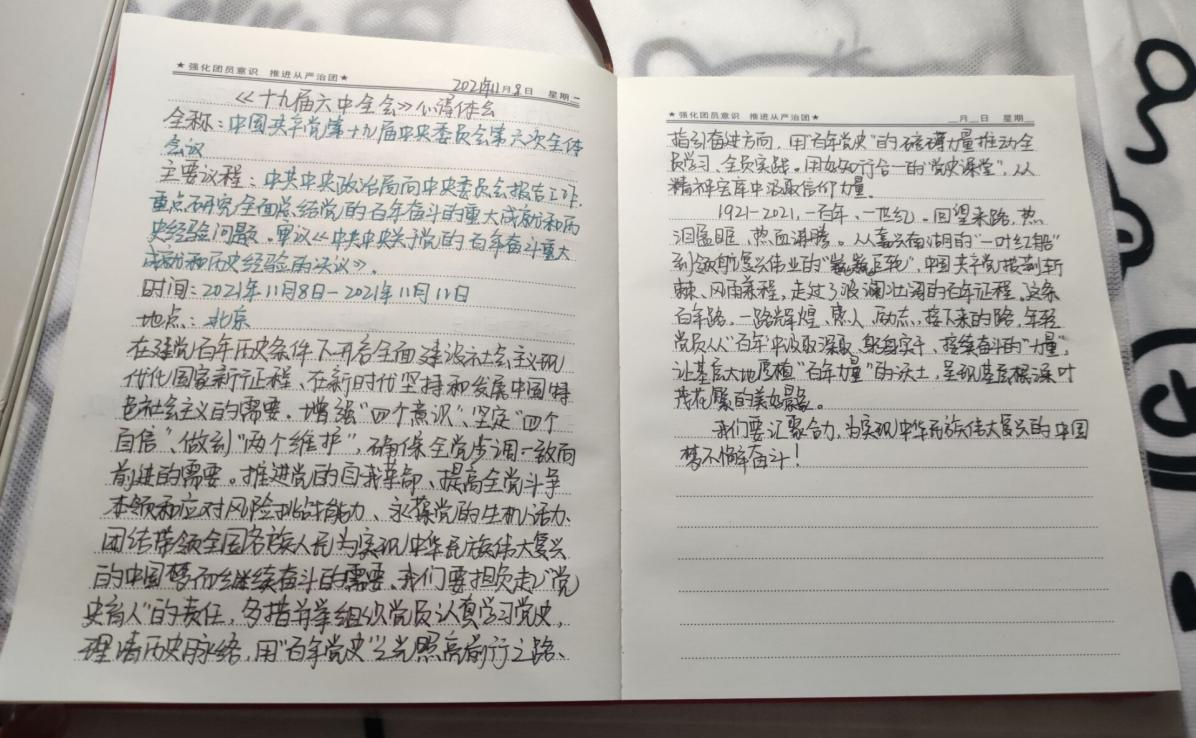 ★强化团员意识 推进从严治团★
2021年11月8日 星期一
《十九届六中全会》心得体会
全称：中国共产党第十九届中央委员会第六次全体
会议
主要议程：中共中央政治局向中央委员会报告工作，
重点研究全面总结党的百年奋斗的重大成就和历
史经验问题。审议《中共中央关于党的百年奋斗重大
成就和历史经验的决议》。
时间：2021年11月8日-2021年11月11日
地点：北京
在建党百年历史条件下开启全面建设社会主义现
代化国家新征程、在新时代坚持和发展中国特
色社会主义的需要。增强“四个意识”、坚定“四个
自信”、做到“两个维护”，确保全党步调一致向
前进的需要。推进党的自我革命、提高全党斗争
本领和应对风险挑战能力、永葆党的生机活力、
团结带领全国各族人民为实现中华民族伟大复兴
的中国梦而继续奋斗的需要、我们要担负走“党
史育人”的责任，多措并举组织党员认真学习党史，
理清历史脉络，用“百年党史”之光照亮前行之路、
★强化团员意识 推进从严治团★
月 日 星期
指引奋进方向，用“百年党史”的磅礴力量推动全
员学习、全员实践。用好知行合一的“党史课堂”，从
精神宝库中汲取信仰力量。
1921-2021，一百年、一世纪。回望来路，热
泪盈眶、热血沸腾。从嘉兴南湖的“一叶红船”
到领航复兴伟业的“巍巍巨轮”，中国共产党披荆斩
棘、风雨兼程，走过了波澜壮阔的百年征程。这条
百年路，一路辉煌、感人、励志，接下来的路，年轻
党员从“百年”中汲取深耕、躬身实干、接续奋斗的“力量”，
让基层大地厚植“百年力量”的沃土，呈现基层根深叶
茂花繁的美好景象。
我们要汇聚合力，为实现中华民族伟大复兴的中国
梦不懈奋斗！